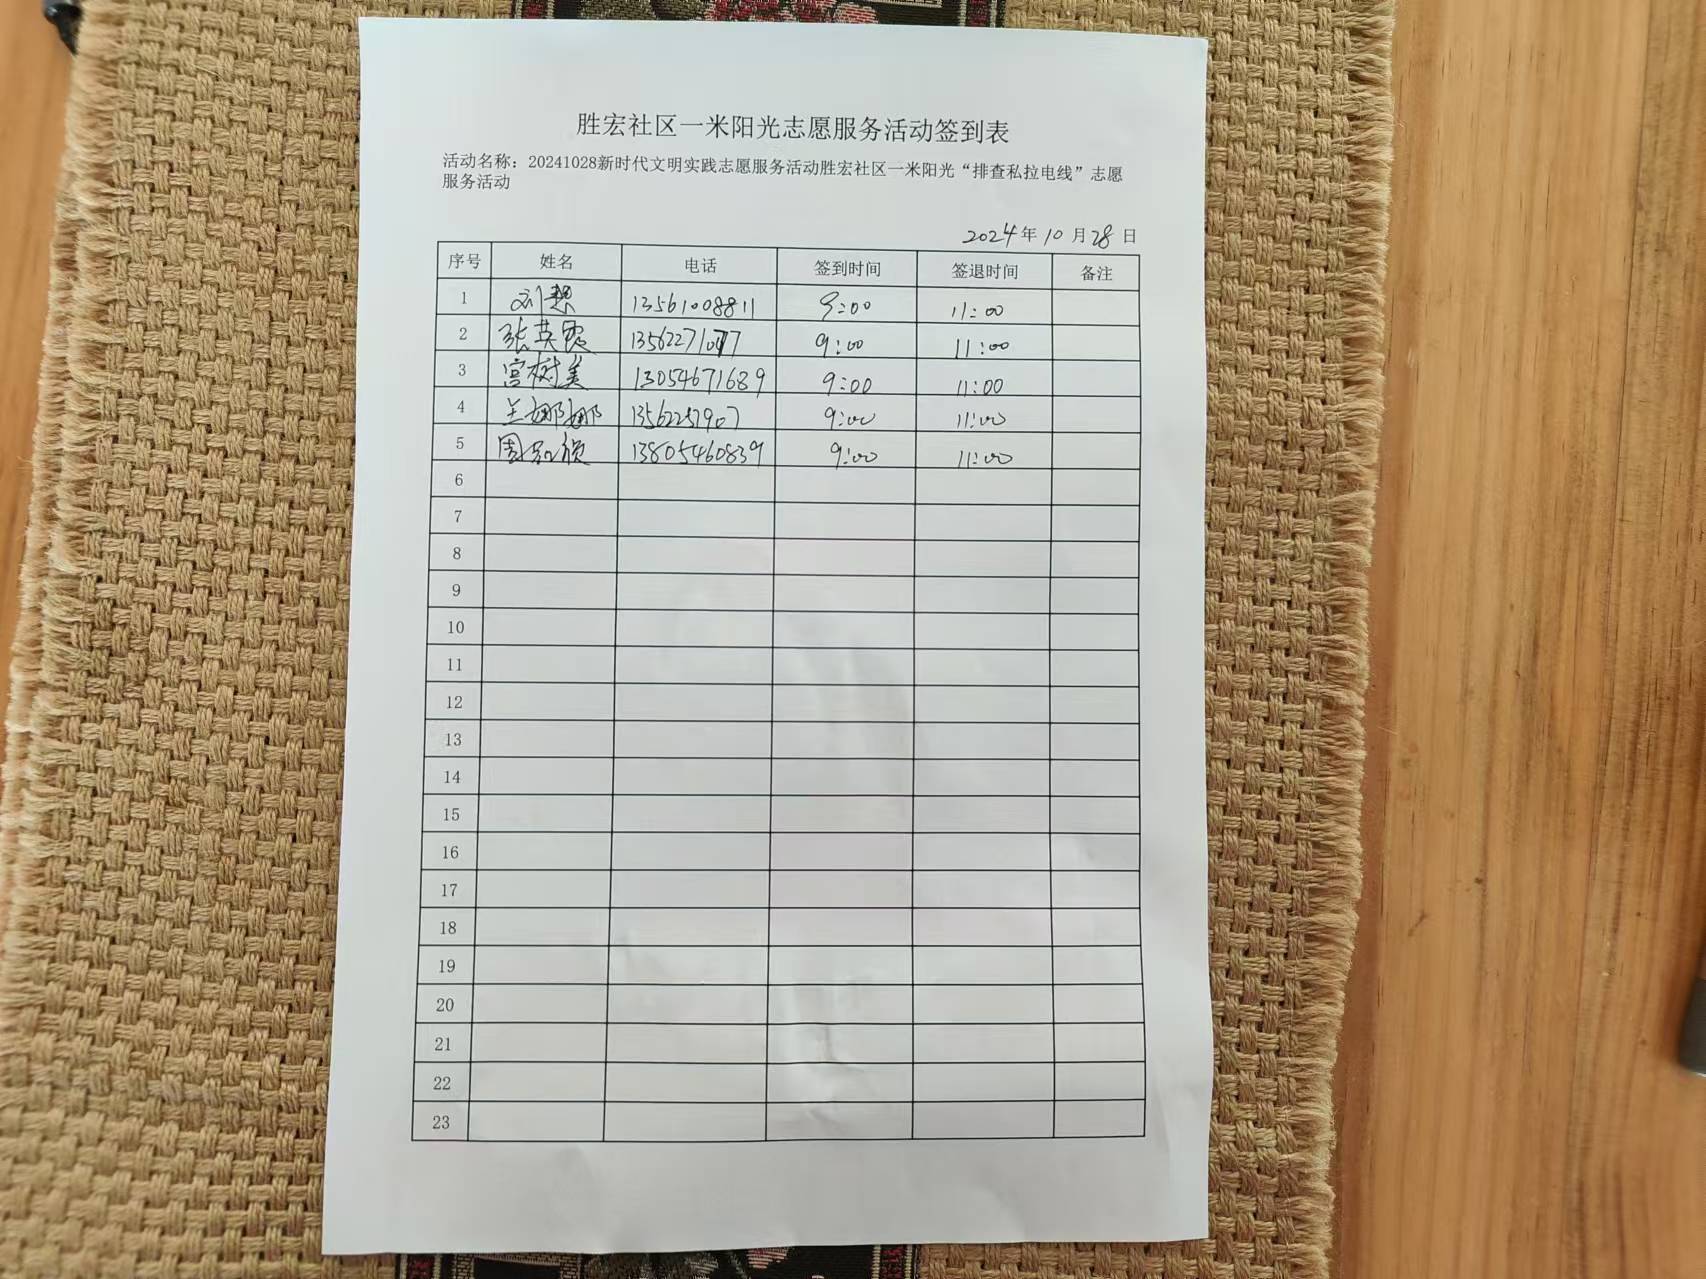 胜宏社区一米阳光志愿服务活动签到表
活动名称：20241028新时代文明实践志愿服务活动胜宏社区一米阳光“排查私拉电线”志愿
服务活动
2024年10月28日
序号 姓名 电话 签到时间 签退时间 备注
1 刘 13561008811 9:00 11:00
2 张英霞 135622710 9:00 11:00
3 宫树美 13054671689 9:00 11:00
4 兰娜娜 9:00 11:00
5 周 13805460839 9:00 11:00
6
7
8
9
10
11
12
13
14
15
16
17
18
19
20
21
22
23